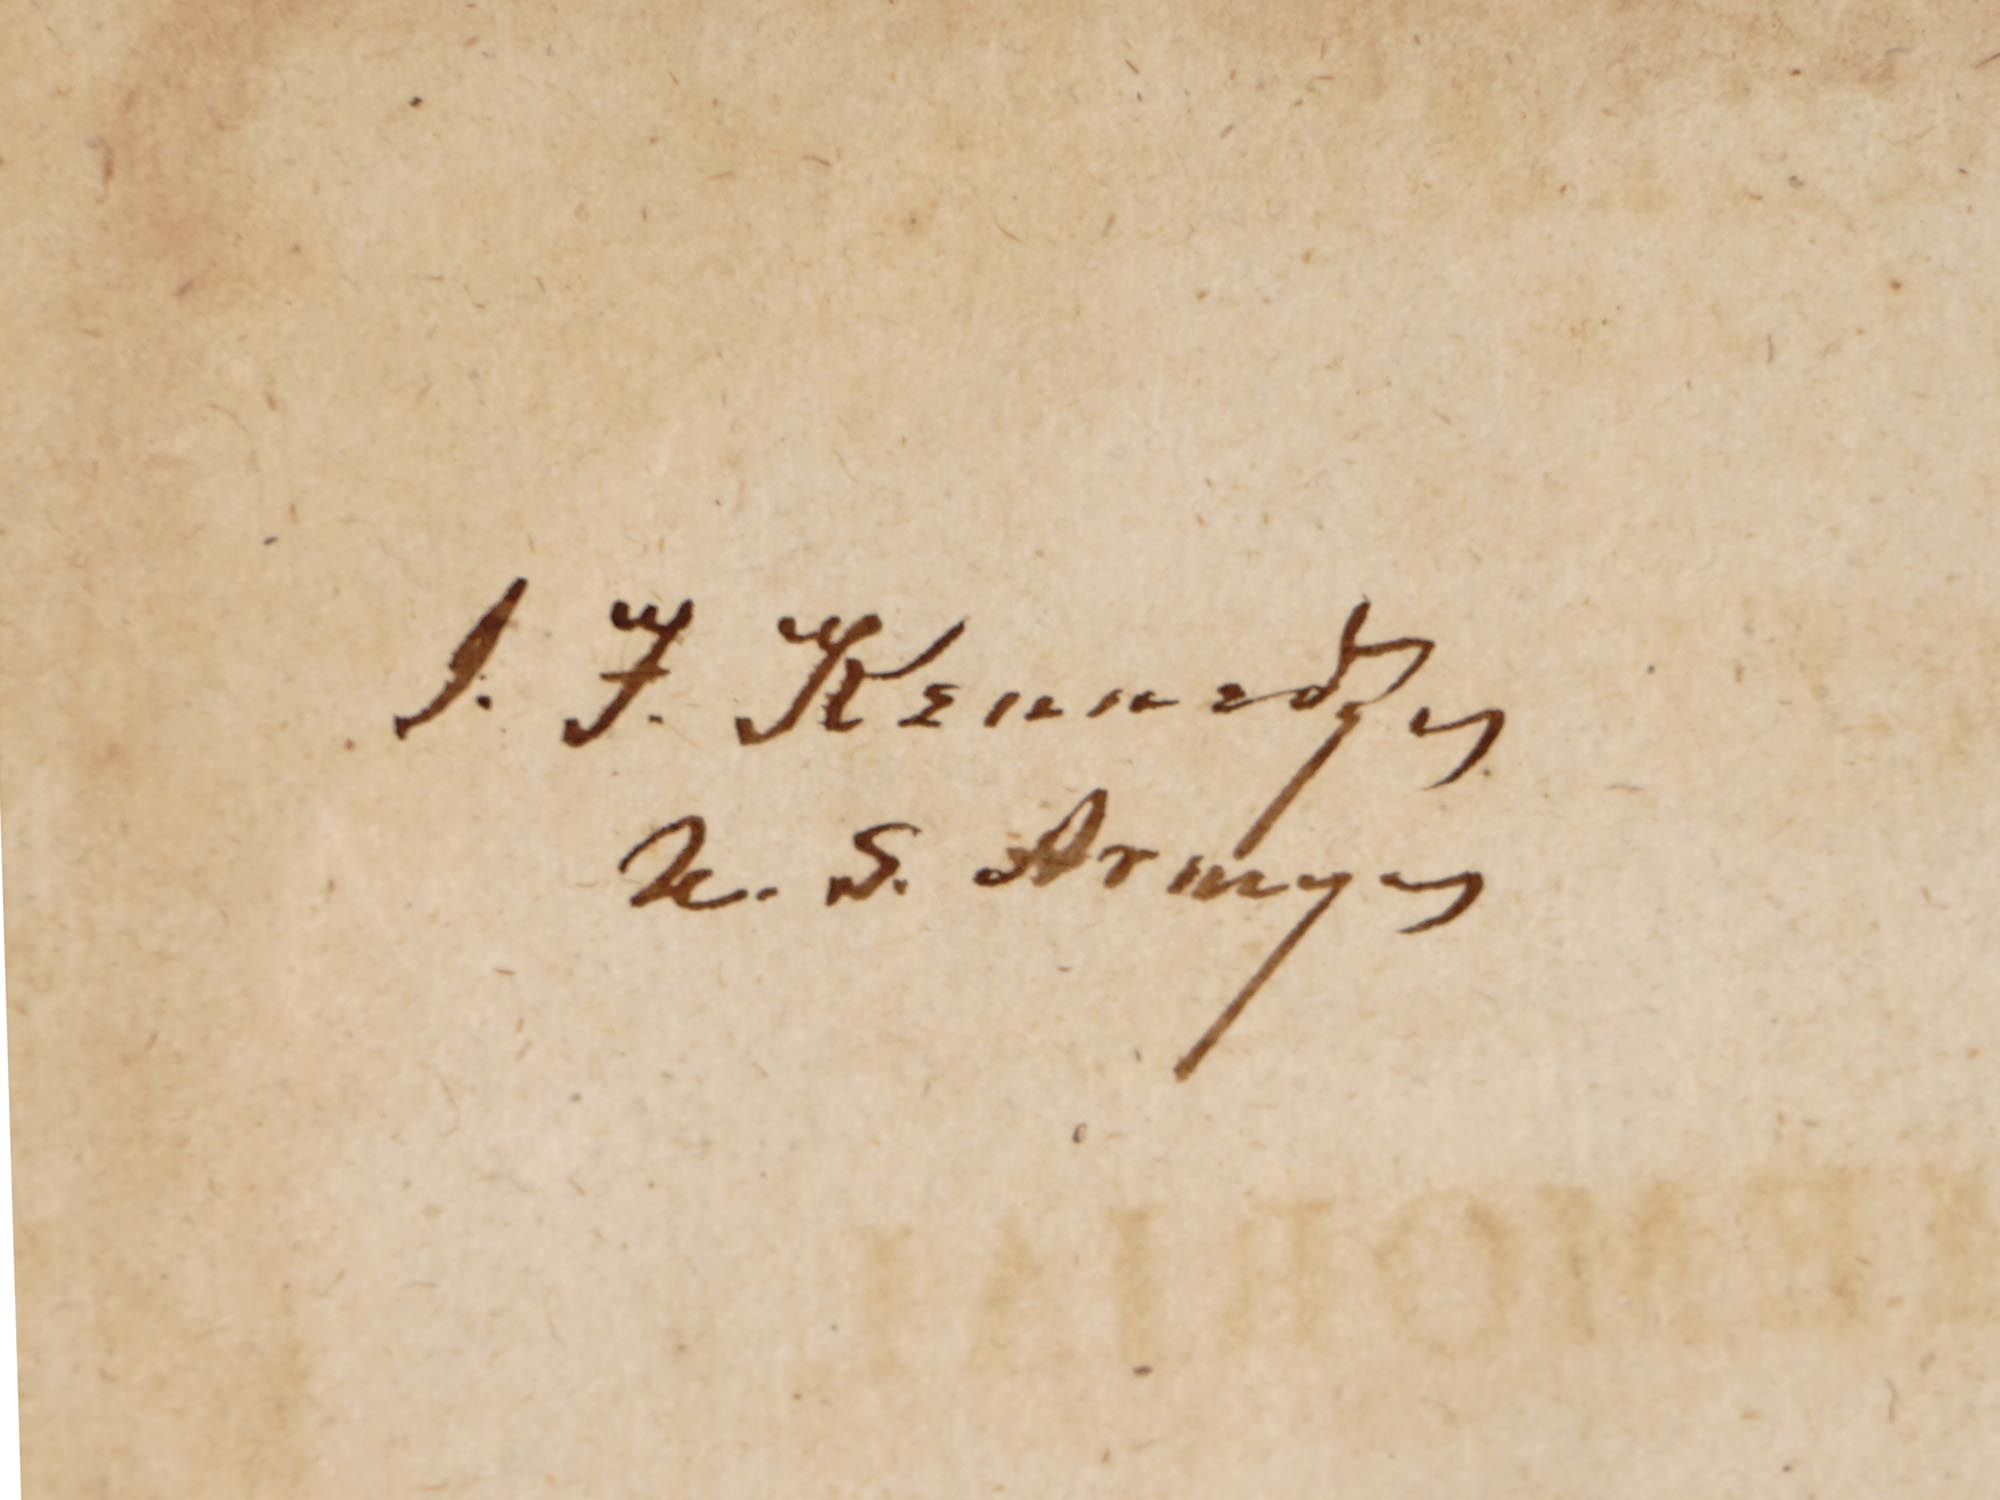 J. F. Kennedy
U. S. Army